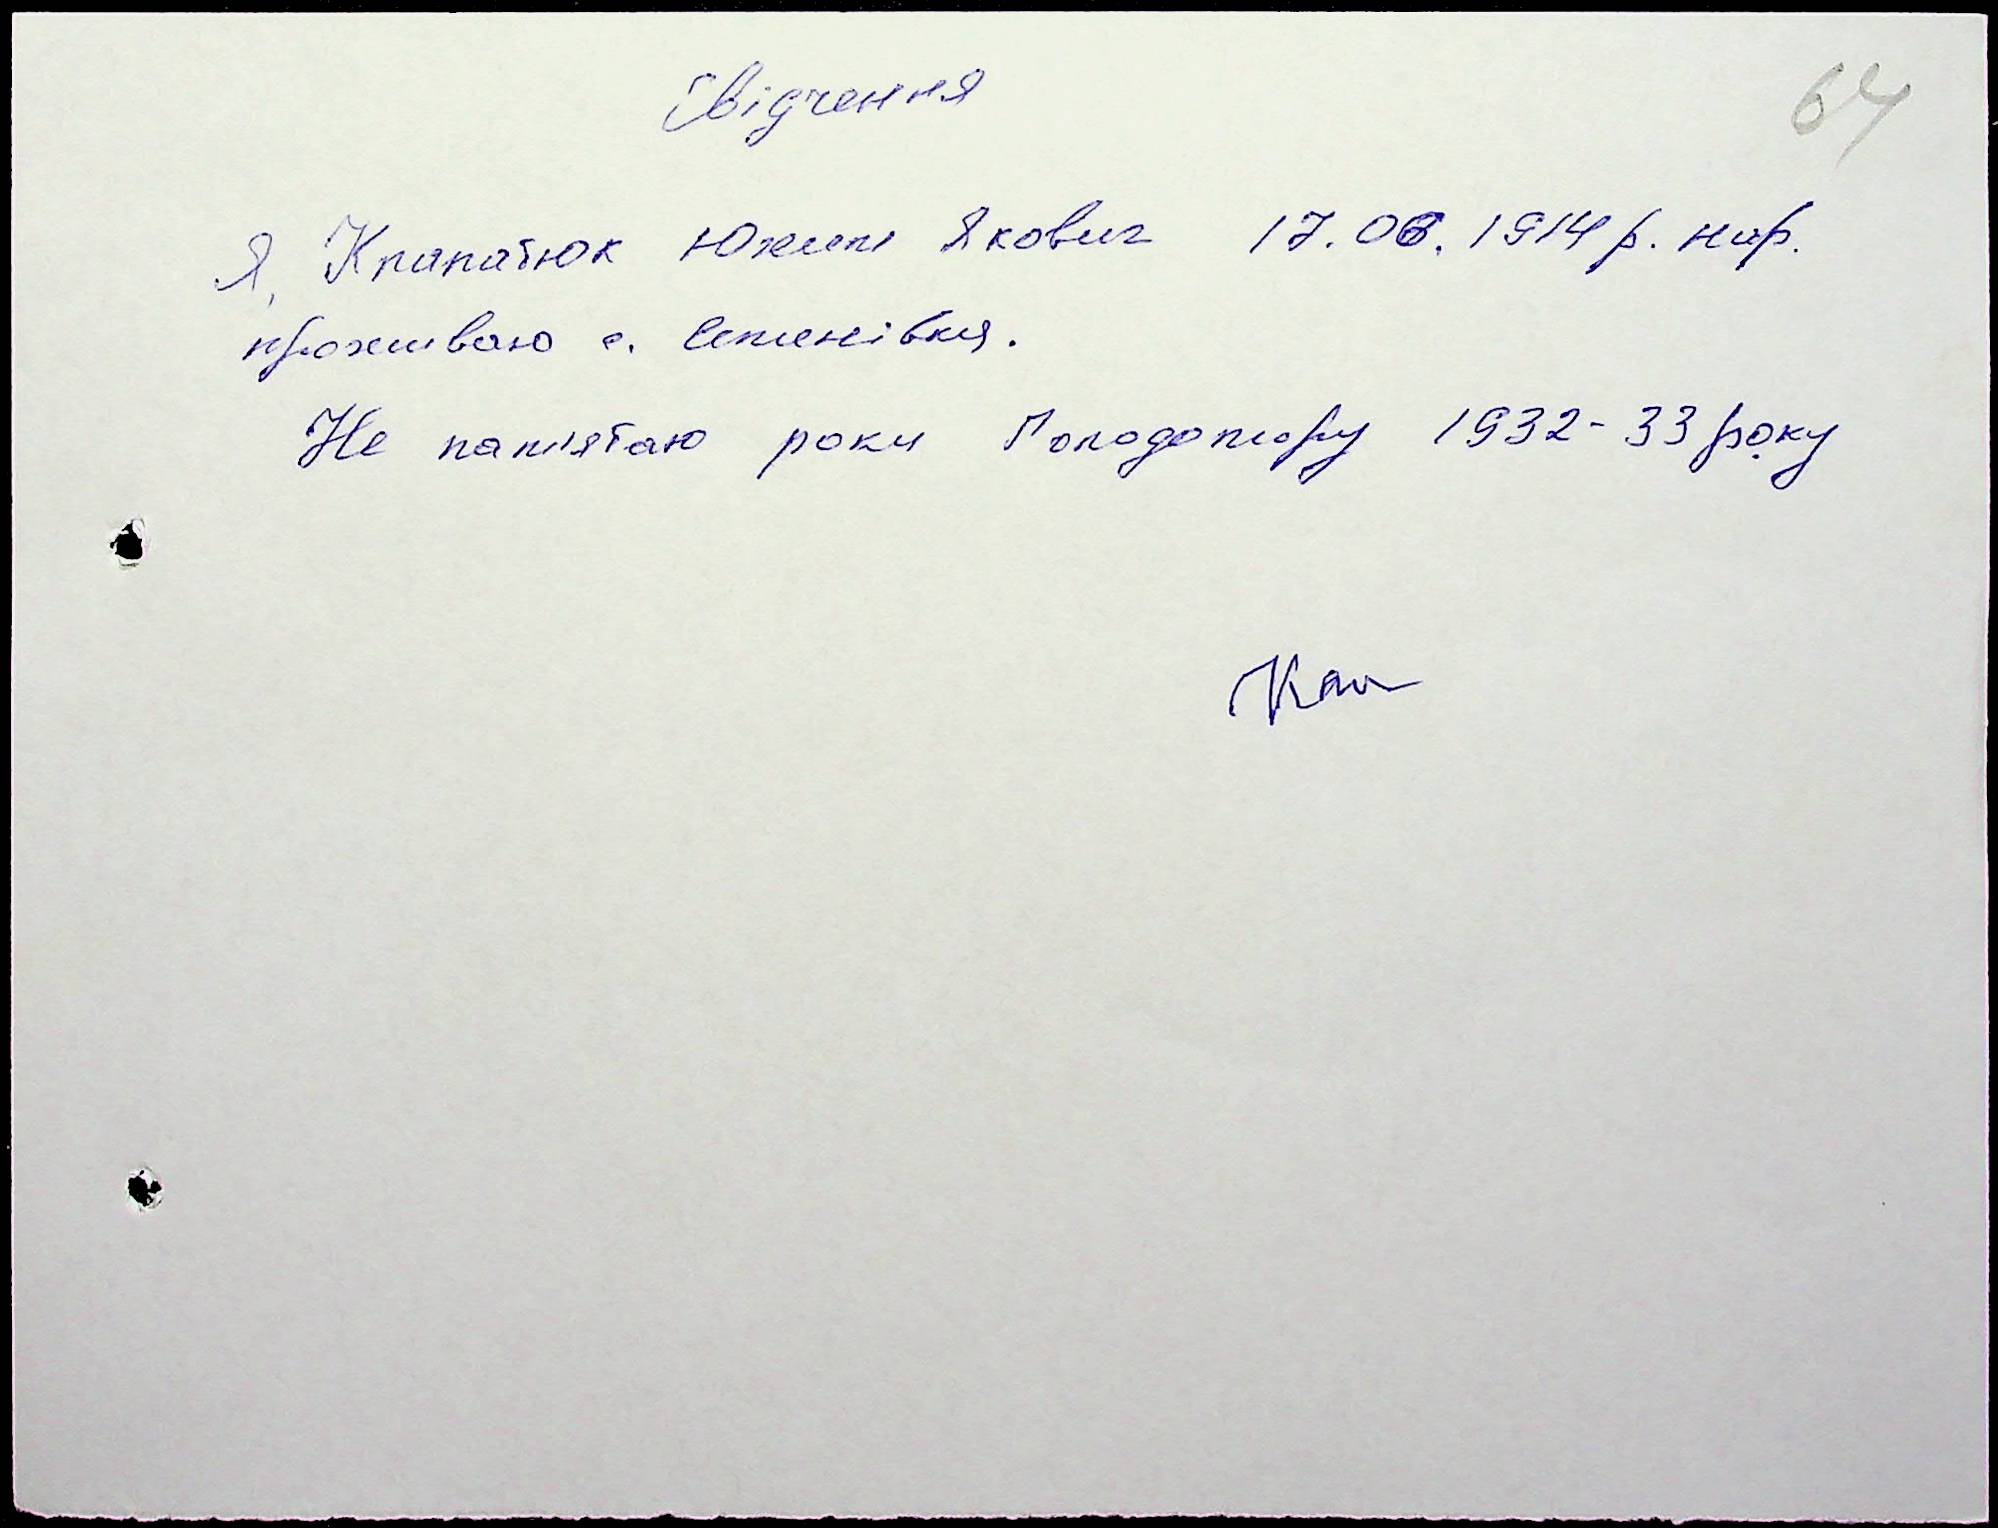 64
Свідчення
Я, Клапатюк Юхим Якович 17.06.1914 р. нар.
проживаю с. Степанівка.
Не пам'ятаю роки Голодомору 1932-33 року